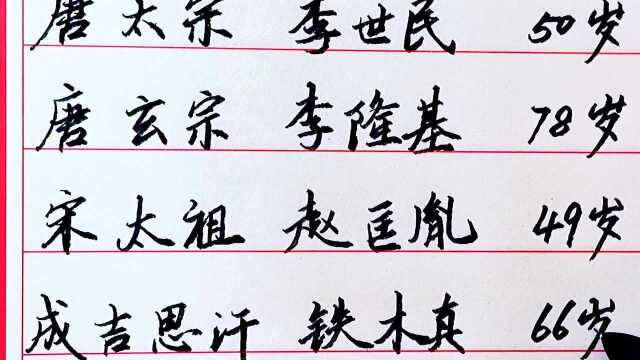 唐太宗 李世民 50岁
唐玄宗 李隆基 78岁
宋太祖 赵匡胤 49岁
成吉思汗 铁木真 66岁